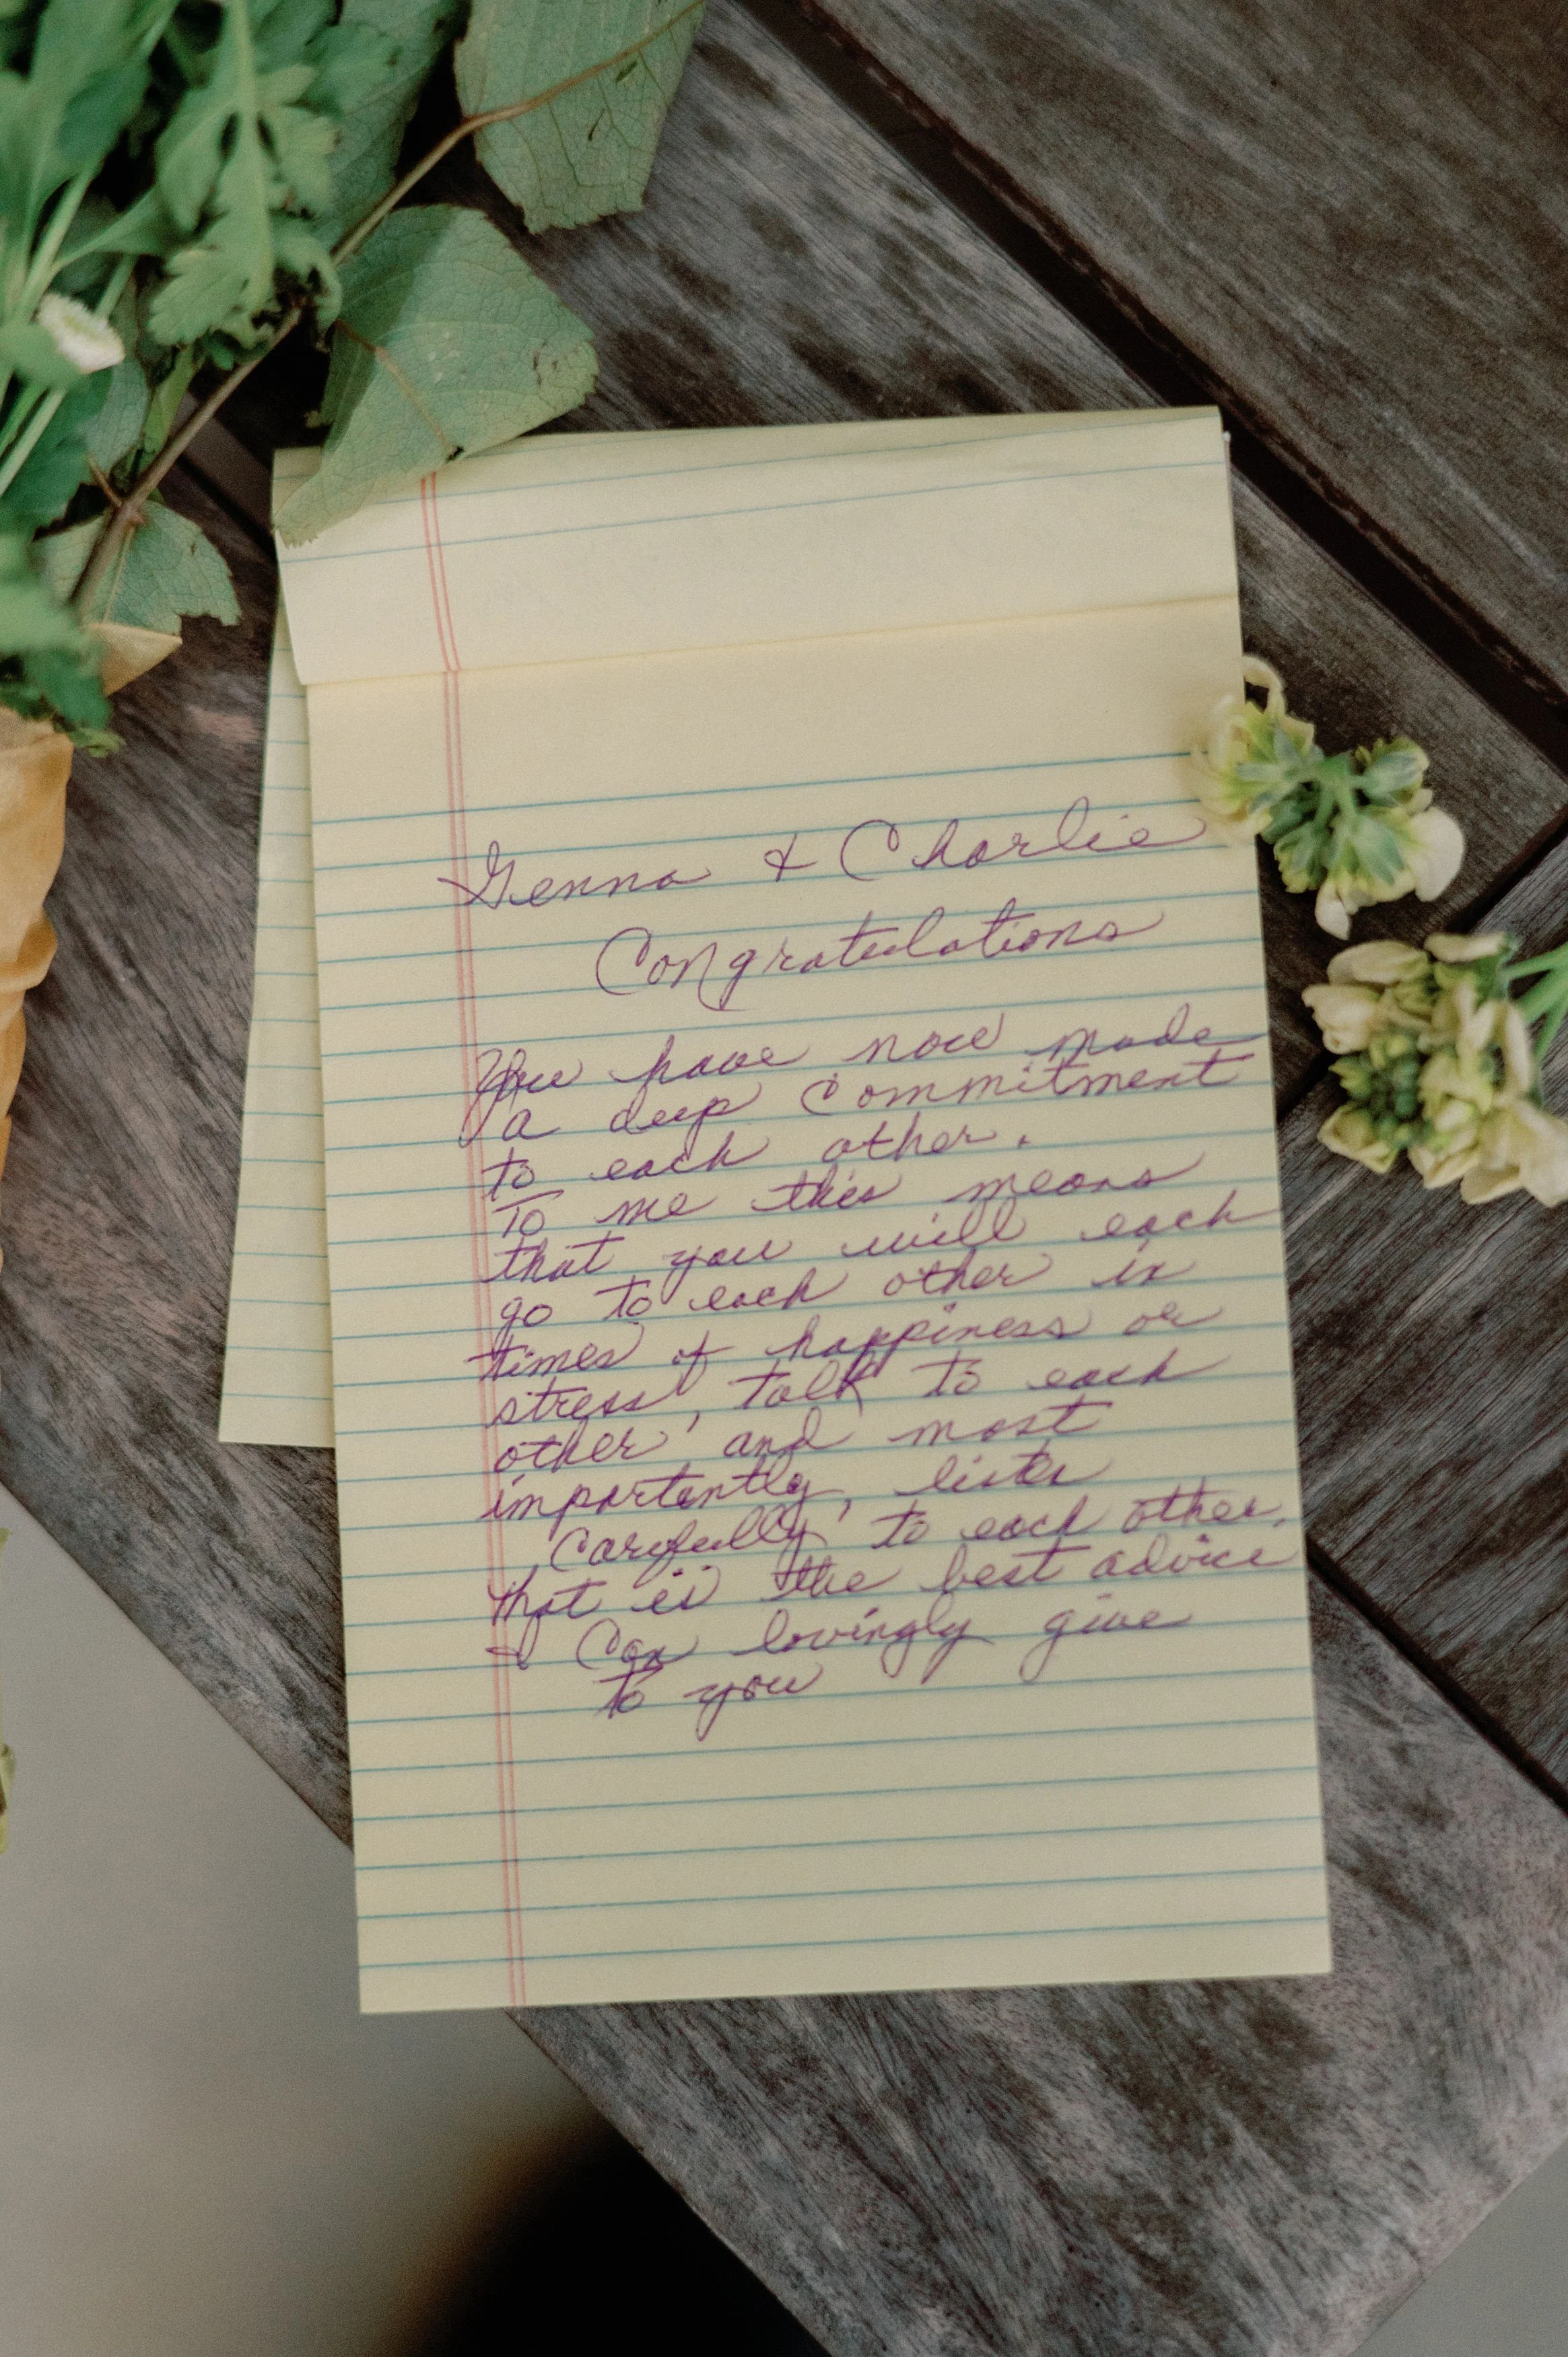 Genna & Charlie
Congratulations
You have now made
a deep commitment
to each other.
To me this means
that you will each
go to each other in
times of happiness or
stress, talk to each
other and most
importantly, listen
carefully to each other.
that is the best advice
I can lovingly give
to you